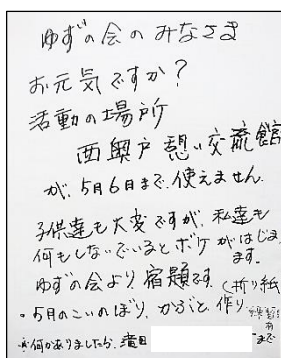 ゆずの会のみなさま
お元気ですか?
活動の場所
西奥戸憩い交流館
が、5月6日まで、使えません。
子供達も大変ですが、私達も
何もしないでいるとボケがはじま
ます。
ゆずの会より宿題です。(折り紙
・5月のこいのぼり、かぶと、作り
※何かありましたら、滝田
まで